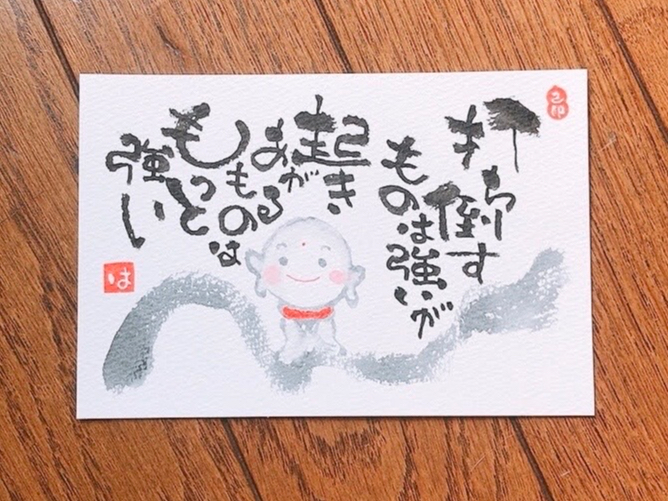 打ち倒す
ものは強いが
起き
あがる
ものは
もっと
強い
は